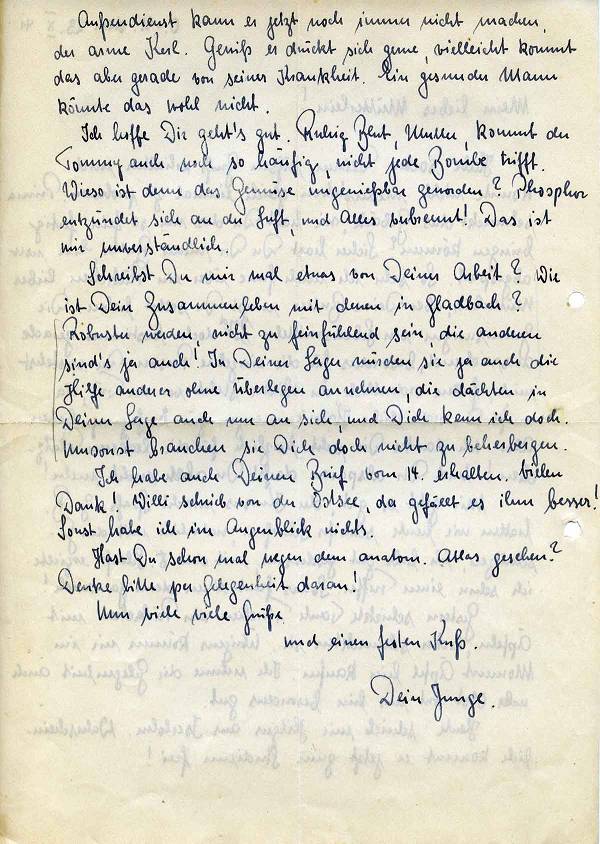 Außendienst kann er jetzt noch immer nicht machen,
der arme Kerl. Gewiß er drückt sich gerne, vielleicht kommt
das aber gerade von seiner Krankheit. Ein gesunder Mann
könnte das wohl nicht.
Ich hoffe Dir geht's gut. Ruhig Blut, Mutter, kommt der
Tommy auch noch so häufig, nicht jede Bombe trifft.
Wieso ist denn das Gemüse ungenießbar geworden? Phosphor
entzündet sich an der Luft, und Alles verbrennt! Das ist
mir unverständlich.
Schreibst Du mir mal etwas von Deiner Arbeit? Wie
ist Dein Zusammenleben mit denen in Gladbach?
Robuster werden, nicht zu feinfühlend sein, die anderen
sind's ja auch! In Deiner Lage würden sie ja auch die
Hilfe anderer ohne Überlegen annehmen, die dächten in
Deiner Lage auch nur an sich, und Dich kenn ich doch.
Umsonst brauchen sie Dich doch nicht zu beherbergen.
Ich habe auch Deinen Brief vom 14. erhalten, vielen
Dank! Willi schrieb von der Ostsee, da gefällt es ihm besser!
Sonst habe ich im Augenblick nichts.
Hast Du schon mal wegen dem anatom. Atlas gesehen?
Denke bitte per Gelegenheit daran!
Nun viele viele Grüße
und einen festen Kuß.
Dein Junge.